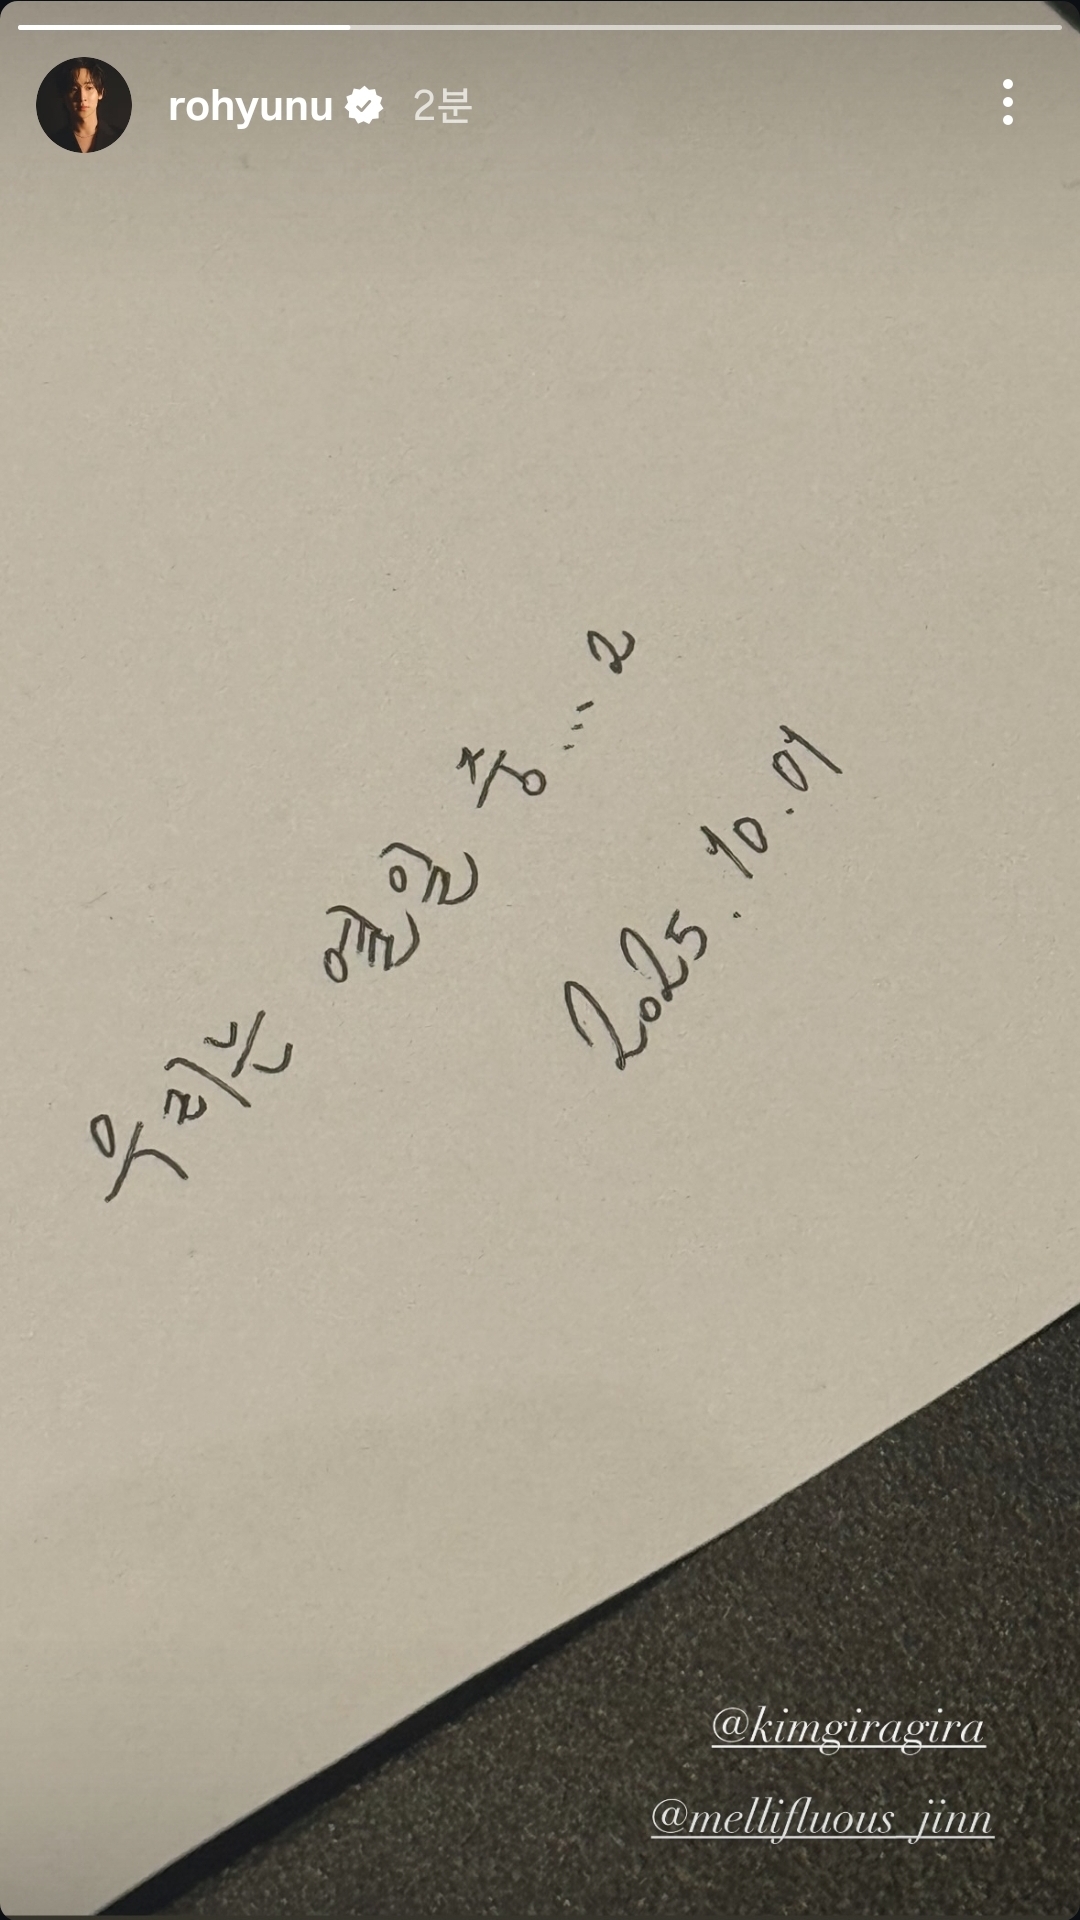 rohyunu 2분
우리는 열일 중 ... 2
2025.10.01
@kimgiragira
@mellifluous_jinn